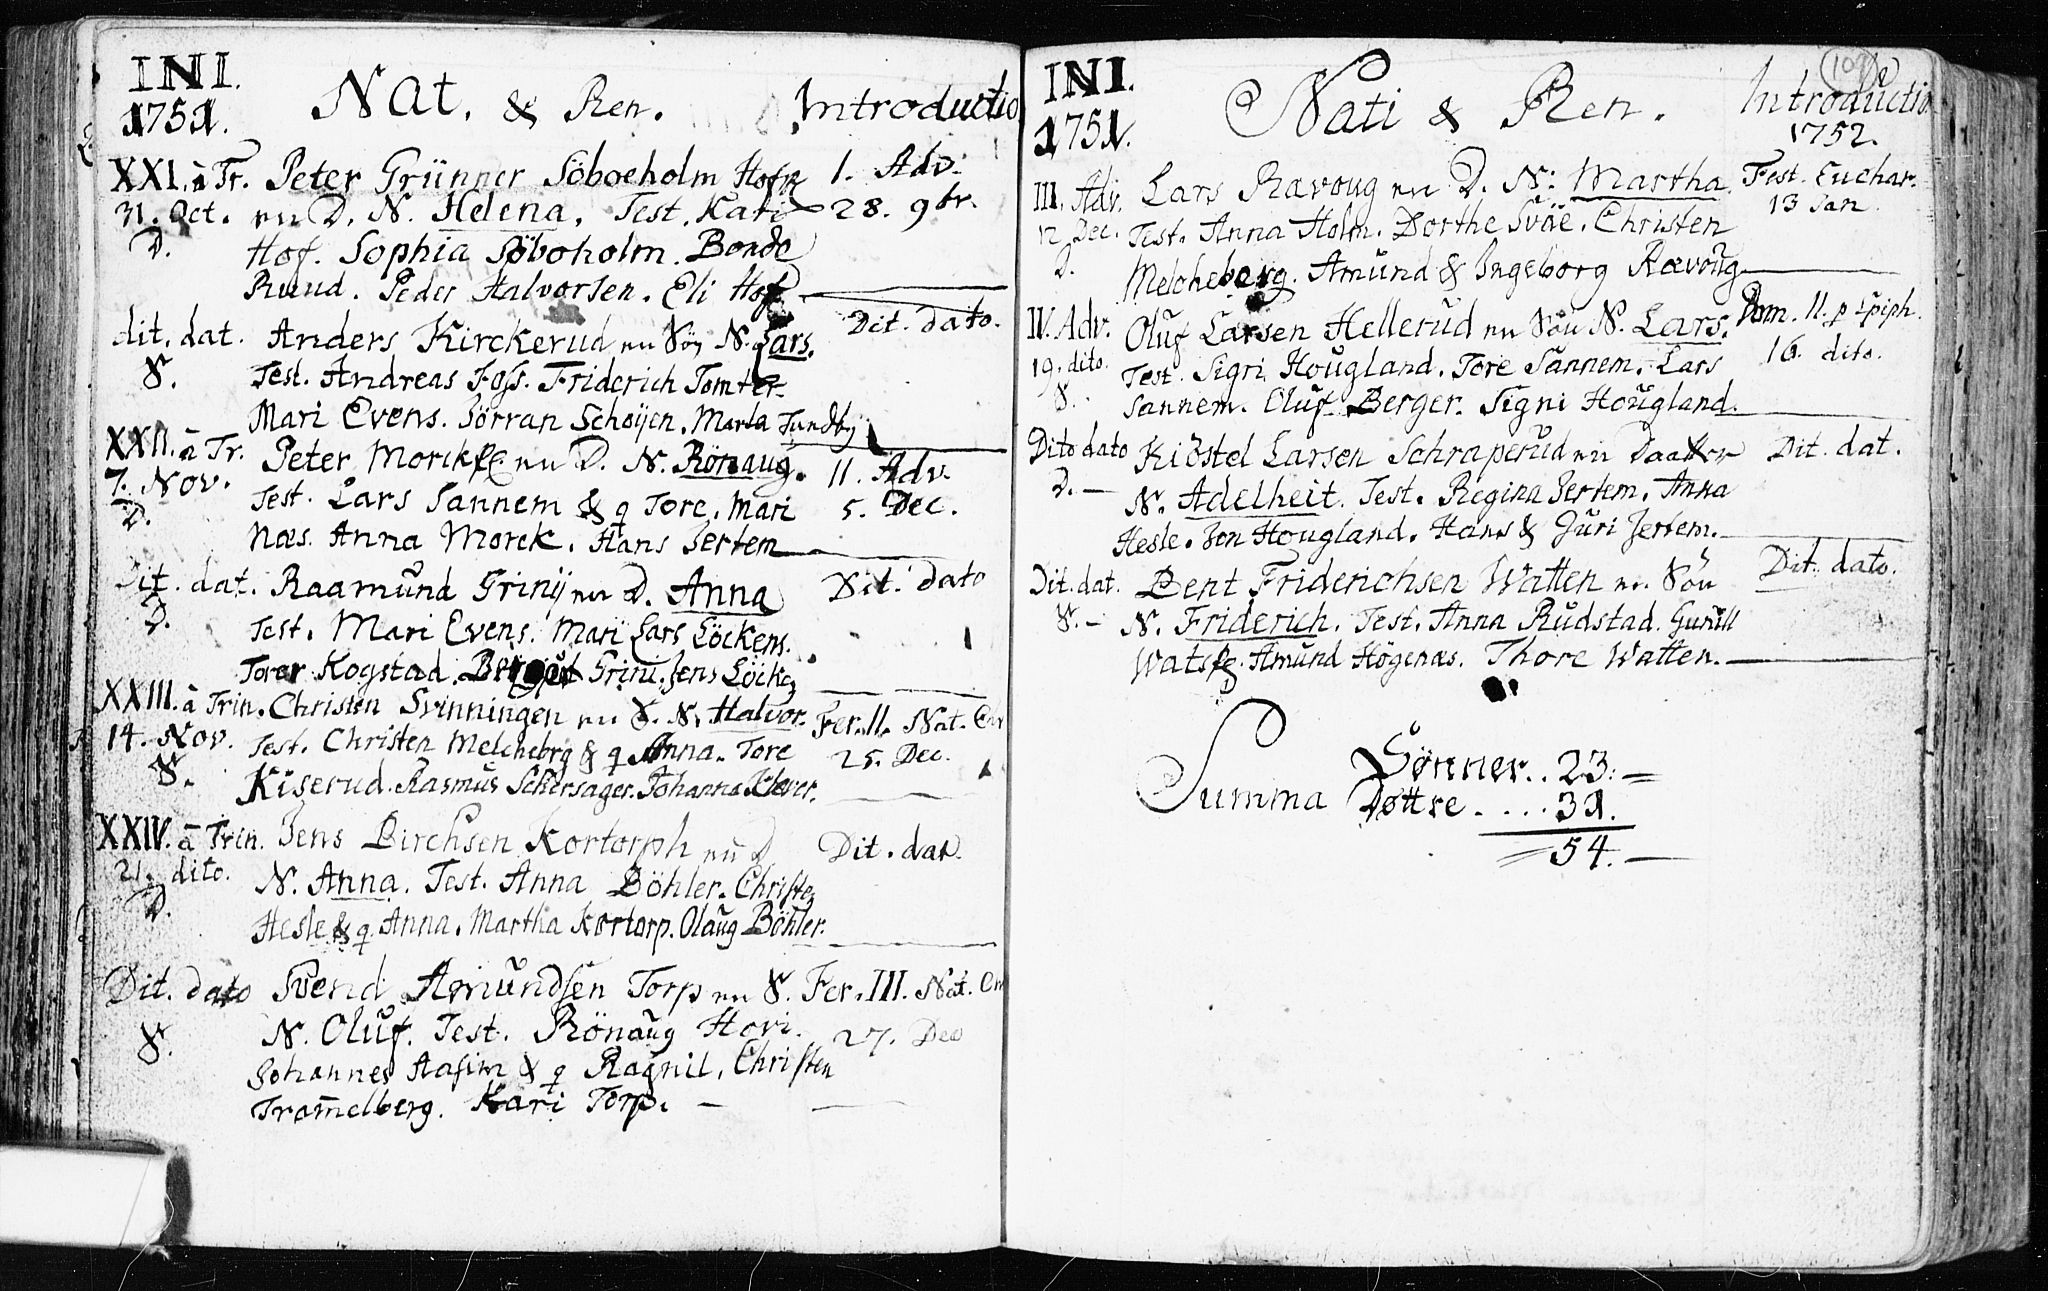 INI.
1751.
Nat. & Ren.
Introductio
XXI. à Tr. Peter Grünner Söboeholm Hofn 1. Adv.
31. Oct. en D. N. Helena. Test. Kari 28. 9br.
D. Hof. Sophia Söboholm. Bonde
Ruud. Peder Halvorsen. Eli Hof.
dit. dat. Anders Kirckerud en Sön N. Lars. Dit. dato.
S. Test. Andreas Foss. Friderich Tomter
Mari Evens. Sörran Schöijen. Marta Fundby
XXII. à Tr. Peter Morck en D. N. Rönaug. 11. Adv.
7. Nov. Test. Lars Sannem & q Tore. Mari 5. Dec.
D. Næs. Anna Morck. Hans Jertem
Dit. dat. Raamund Grinij en D. Anna Dit. dato
D. Test. Mari Evens. Mari Lars Löckens.
Torer Kogstad. Grini. Jens Löcken
XXIII. à Trin. Christen Svinningen en S. N. Halvor. Fer. II. Nat. Chr
14. Nov. Test. Christen Melcheberg & q Anna. Tore 25. Dec.
S. Kiserud. Rasmus Schersager. Johanna Klever.
XXIV. à Trin. Jens Birchsen Kortorph en D Dit. dat.
21. dito. N. Anna. Test. Anna Böhler. Christen
D. Hesle & q Anna. Martha Kortorp. Olaug Böhler.
Dit. dato Svend Amundsen Torp en S. Fer. III. Nat. Chr
S. N. Oluf. Test. Rönaug Hovi. 27. Dec
Johannes Aasim & q Ragnil. Christen
Tramelberg. Kari Torp.
109
INI.
1751.
Nati & Ren.
Introductio
1752.
III. Adv. Lars Rævoug en D. N: Martha. Fest. Euchar.
12 Dec. Test. Anna Holm. Dorthe Sväe. Christen 13 Jan.
D. Melcheberg. Amund & Ingeborg Rævoug
IV. Adv. Oluf Larsen Hellerud en Sön N. Lars. Dom. II. p Epiph.
19. dito. Test. Sigri Hougland. Tore Sannem. Lars 16. dito.
S. Sannem. Oluf Berger. Signi Hougland.
Dito dato Kiöstel Larsen Schraperud en Daatter Dit. dat.
D. N. Adelheit. Test. Regina Jertem. Anna
Hesle. Jon Hougland. Hans & Guri Jertem.
Dit. dat. Bent Friderichsen Watten en Sön Dit. dato.
S. N. Friderich. Test. Anna Rudstad. Gunill
Amund Högenæs. Thore Watten.
Summa Sønner.. 23.
Døttre .... 31.
54.